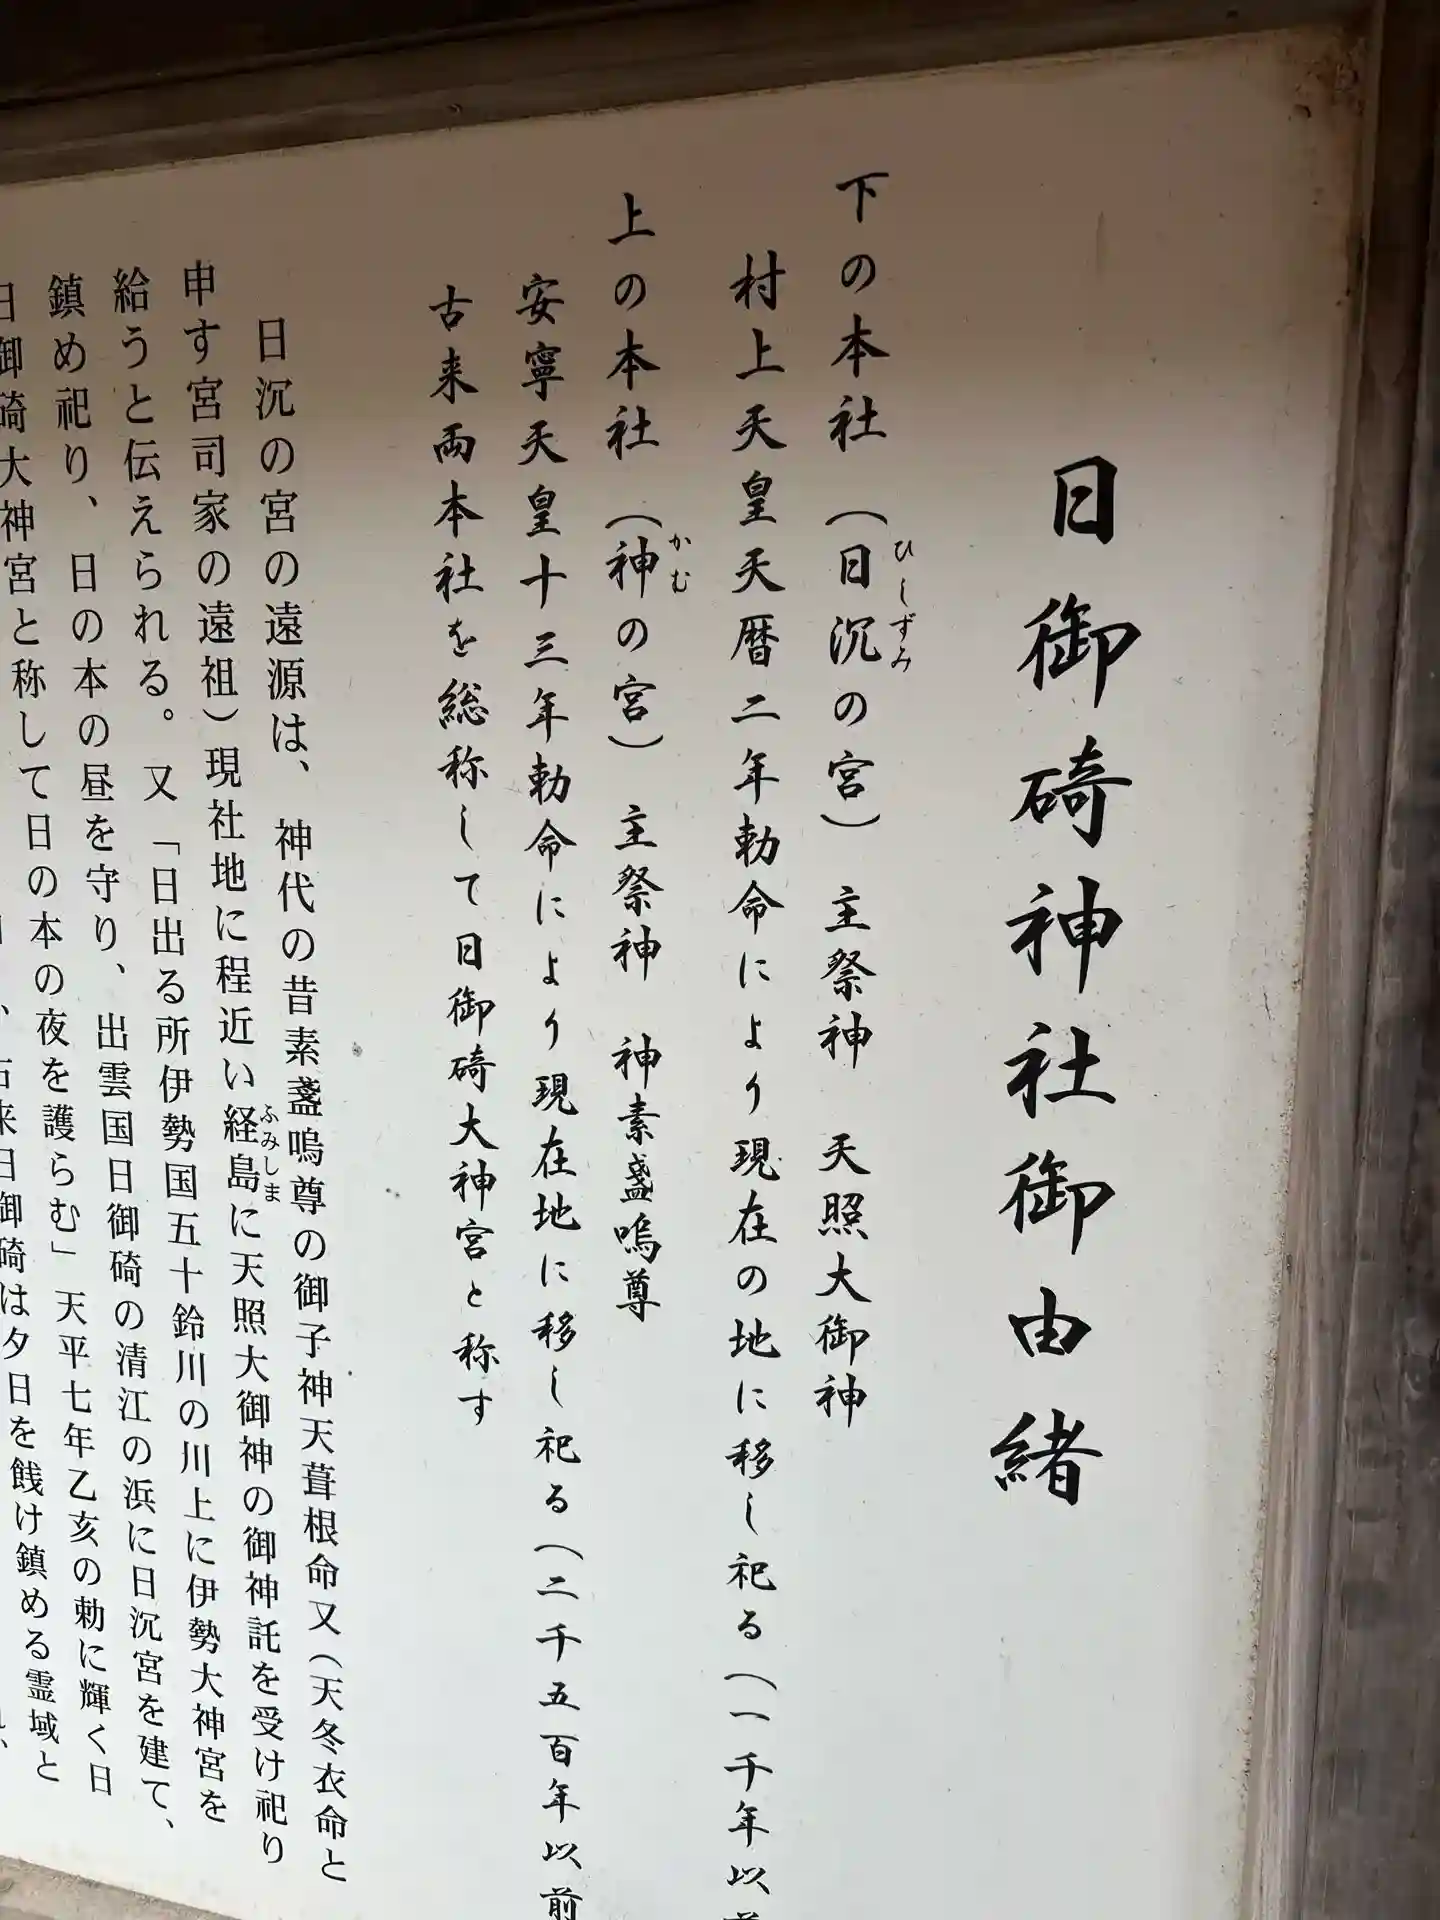 日御碕神社御由緒
下の本社(日沉の宮) 主祭神 天照大御神
ひしずみ
村上天皇天暦二年勅命により現在の地に移し祀る(一千年以前
上の本社(神の宮) 主祭神 神素盞嗚尊
かむ
安寧天皇十三年勅命により現在地に移し祀る(二千五百年以前
古来両本社を総称して日御碕大神宮と称す
日沉の宮の遠源は、神代の昔素盞嗚尊の御子神天葺根命又(天冬衣命と
申す宮司家の遠祖)現社地に程近い経島に天照大御神の御神託を受け祀り
ふみしま
給うと伝えられる。又「日出る所伊勢国五十鈴川の川上に伊勢大神宮を
鎮め祀り、日の本の昼を守り、出雲国日御碕の清江の浜に日沉宮を建て、
日御碕大神宮と称して日の本の夜を護らむ」天平七年乙亥の勅に輝く日
、古来日御碕は夕日を餞け鎮める霊域と